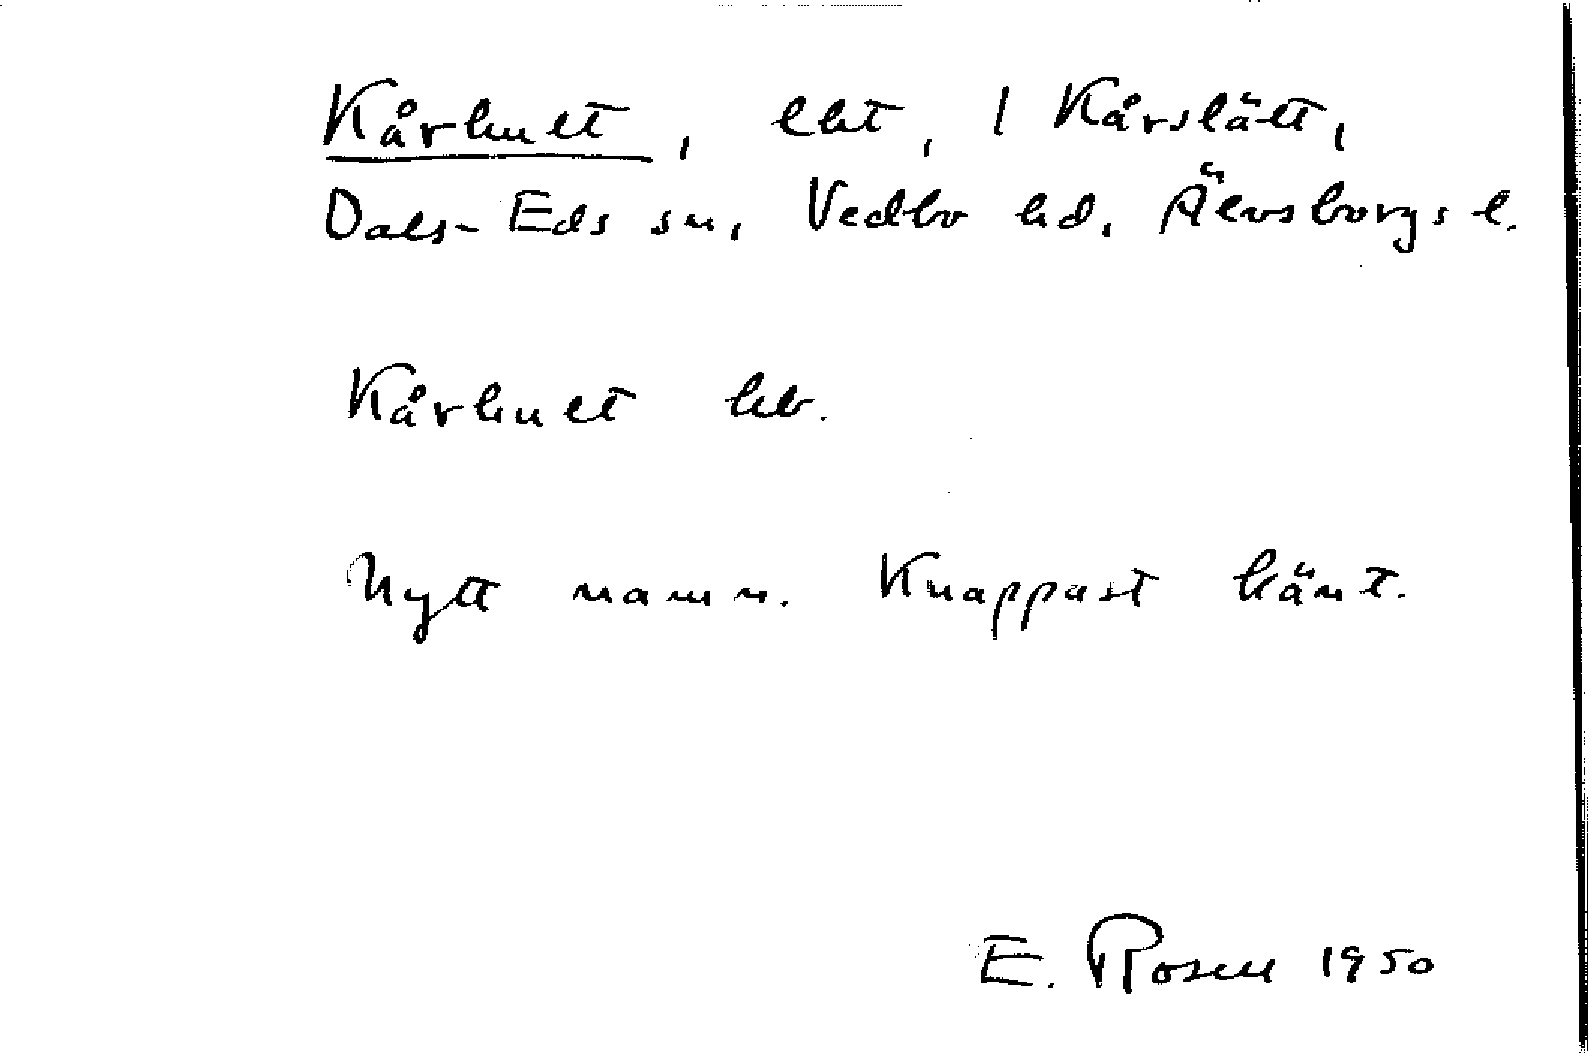 Kårhult, lht, 1 Kårslätt,
Dals-Eds sn, Vedbo hd, Älvsborgs l.
Kårhult kb.
Nytt namn. Knappast känt.
E. Rosell 1950